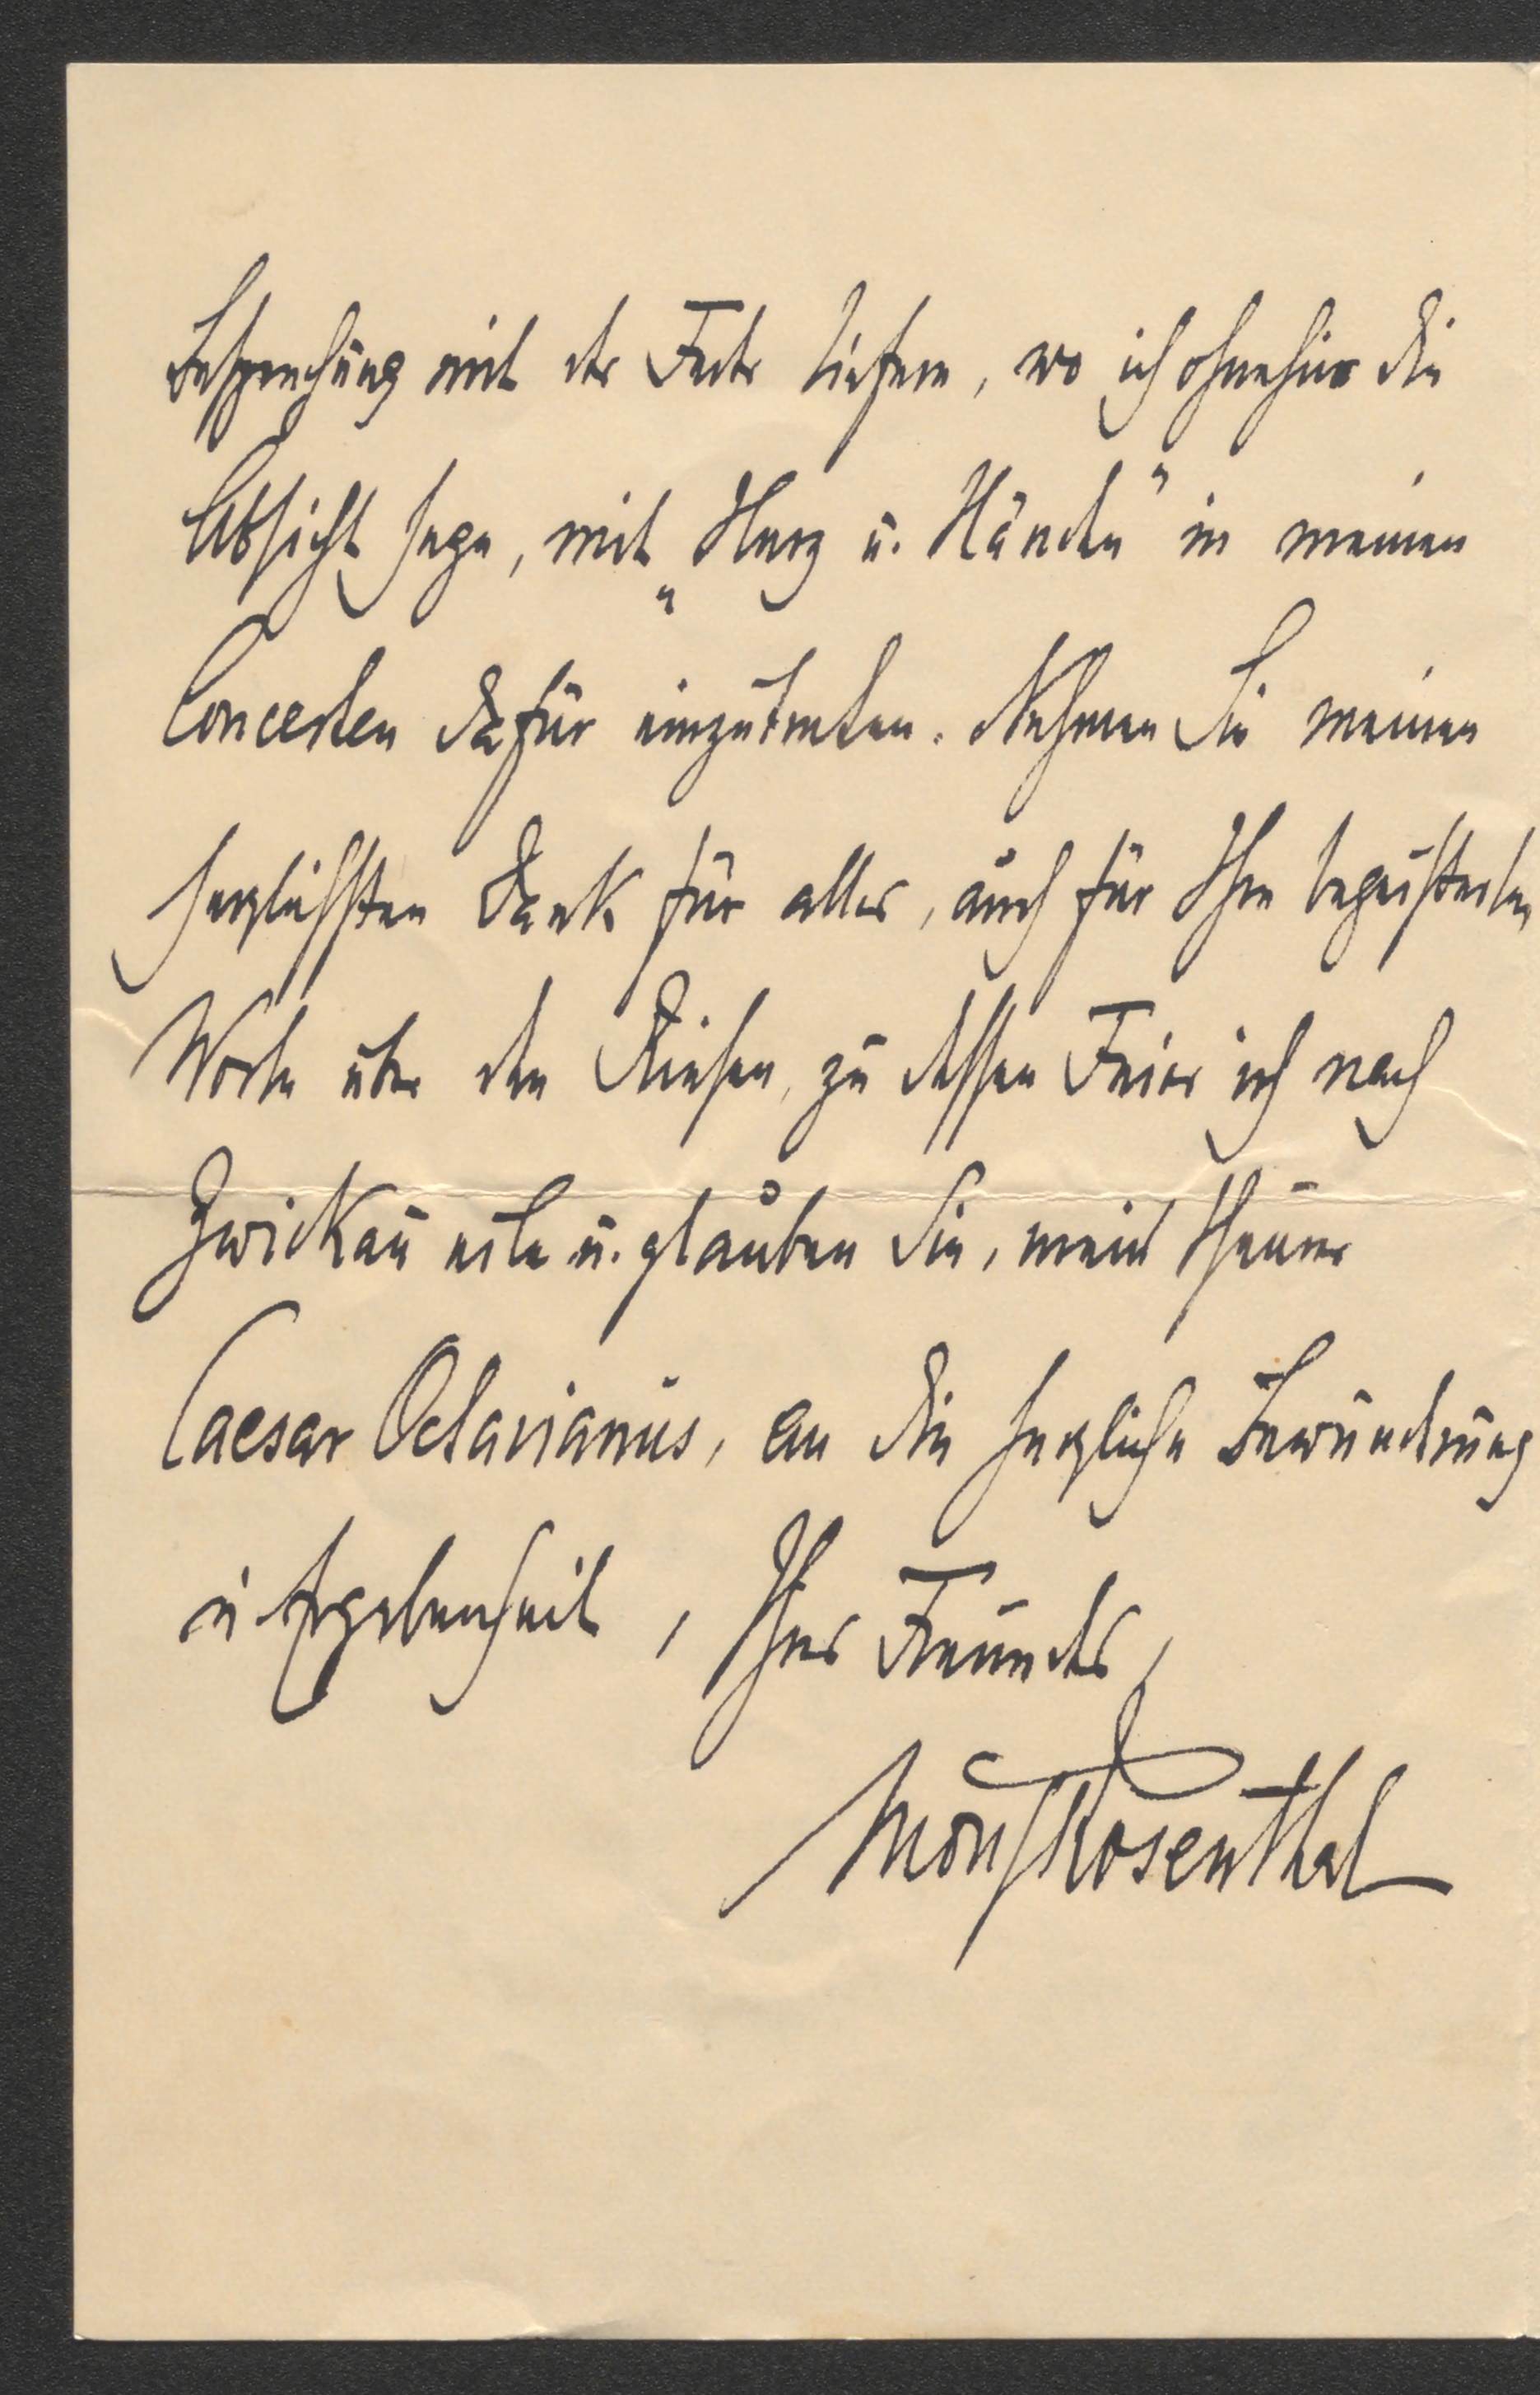 Besprechung mit der Feder liefern, wo ich ohnehin die
Absicht hege, mit „Herz u. Händen" in meinen
Concerten dafür einzutreten. Nehmen Sie meinen
herzlichsten Dank für alles, auch für Ihre begeisterten
Worte über den Riesen, zu dessen Feier ich nach
Zwickau eile u. glauben Sie, mein theurer
Caesar Octavianus, an die herzliche Bewunderung
u Ergebenheit, Ihres Freundes,
Moriz Rosenthal